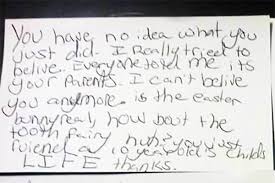 You have no idea what you
just did. I Really tried to
belive. Everyone told me its
your parents. I can't belive
you anymore. is the easter
bunny real, how bout the
tooth fairy huh? you just
ruiend a 10 year old's childs
LIFE thanks.